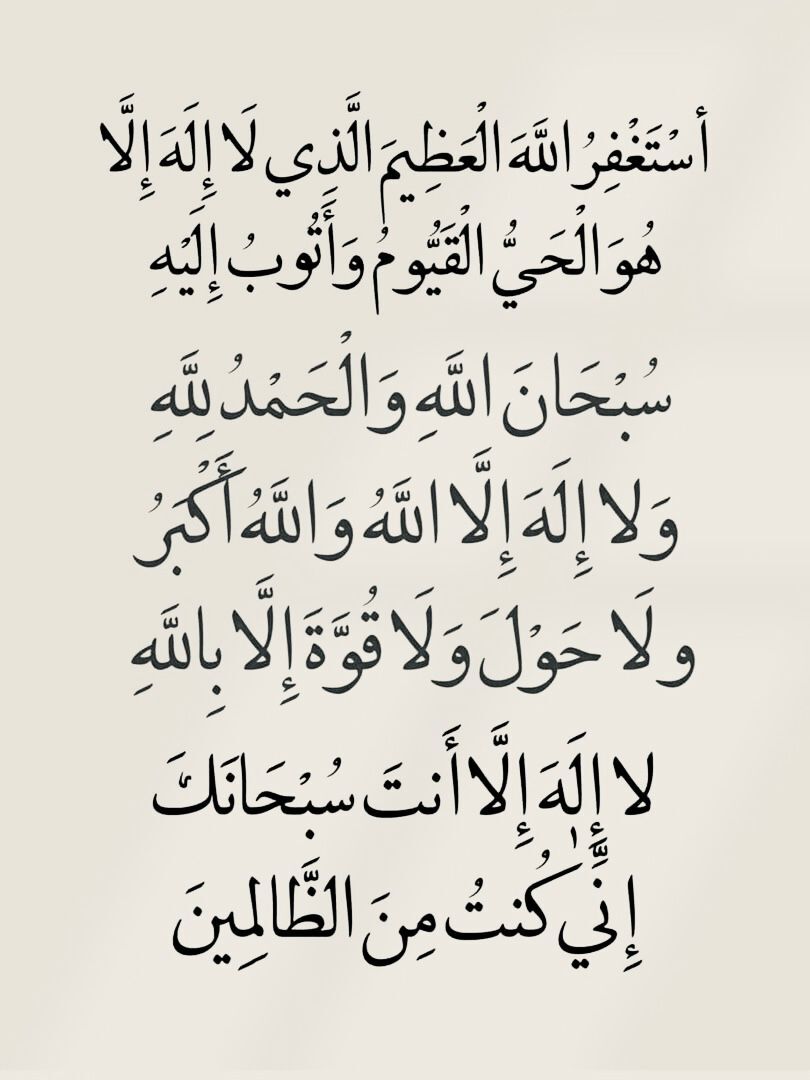 أسْتَغْفِرُ اللَّهَ الْعَظِيمَ الَّذِي لَا إِلَهَ إِلَّا
هُوَ الْحَيُّ الْقَيُّومُ وَأَتُوبُ إِلَيْهِ
سُبْحَانَ اللَّهِ وَالْحَمْدُ لِلَّهِ
وَلا إِلَهَ إِلَّا اللَّهُ وَاللَّهُ أَكْبَرُ
و لَا حَوْلَ وَلَا قُوَّةَ إِلَّا بِاللَّهِ
لا إِلَٰهَ إِلَّا أَنتَ سُبْحَانَكَ
إِنِّي كُنتُ مِنَ الظَّالِمِينَ